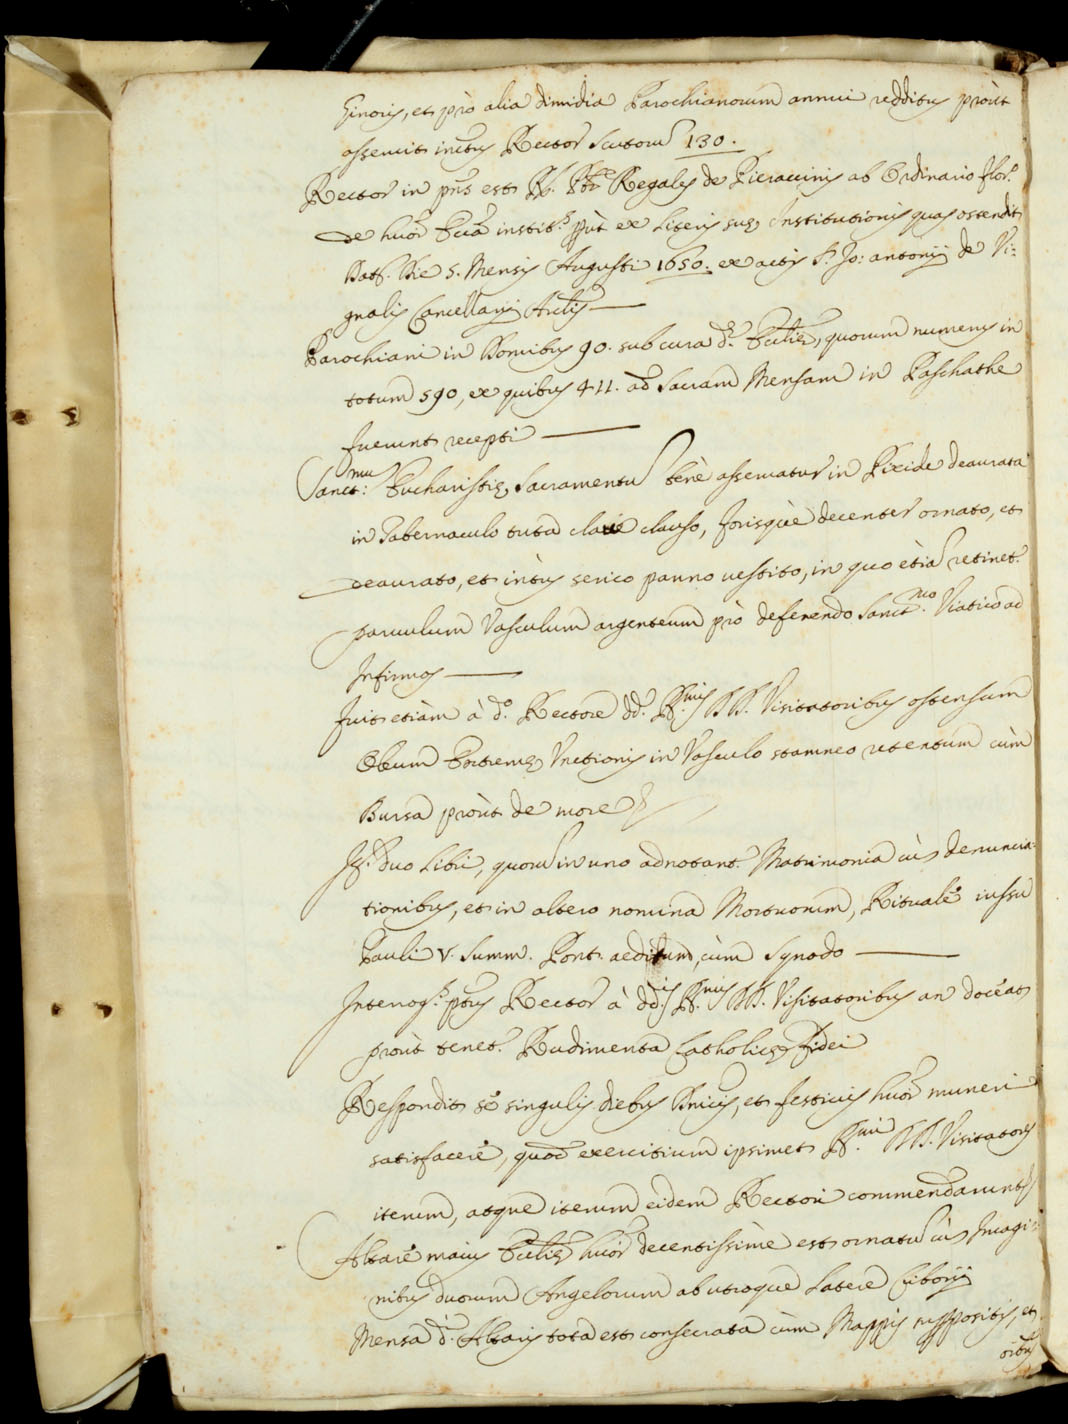 Ginoris, et prò alia dimidia Parochianorum annui redditus proùt
asseruit inctus Rector Scutorū 130.
Rector in pñs est R. Pbr Regalis de Pieraccinis ab Ordinario flor.
de huōi Ecc̄a instit.s prùt ex Literis suę Institutionis quas ostendit
Dat. Die 5. Mensis Augusti 1650. ex actis S. Jo: antonij de Vi=
gnalis Cancellarij Archis
Parochiani in Domibus 90. sub cura d.ę Ecclię, quorum numerus in
totum 590, ex quibus 411. ad Sacram Mensam in Paschathe
fuerunt recepti
Sanct:mū Eucharistię Sacramentū benè asseruatur in Pixide deaurata
in Tabernaculo tuta claue clauso, forisquè decenter ornato, et
deaurato, et intùs serico panno uestito, in quo ètiā retinet.
paruulum Vasculum argenteum prò deferendo Sanct.mo Viatico ad
Infirmos
fuit etiàm à d.o Rectore dd. R.mis DD. Visitatoribus ostensum
Oleum Extremę Vnctionis in Vasculo stamneo retentum cùm
Bursa proùt de more
It. duo Libri, quorū in uno adnotant. Matrimonia cū denuncia=
tionibus, et in altero nomina Mortuorum, Ritualè iussu
Pauli V. Summ. Pont. aeditum, cùm Synodo
Interrog.s ptus Rector à dd.is R.mis DD. Visitatoribus an doceat
proùt tenet. Rudimenta Catholicę Fidei
Respondit sè singulis diebus Dnicis, et festiuis huōi muneri
satisfacerè, quod exercitium ipsimet R.mi DD. Visitatores
iterum, atque iterum eidem Rectori commendarunt
Altarè maius Ecclię huōi decentissimè est ornatū cū Imagi=
nibus duorum Angelorum ab utroque Latere Ciborij
Mensa d. Altaris tota est consecrata cùm Mappis suppositis, et
oibus